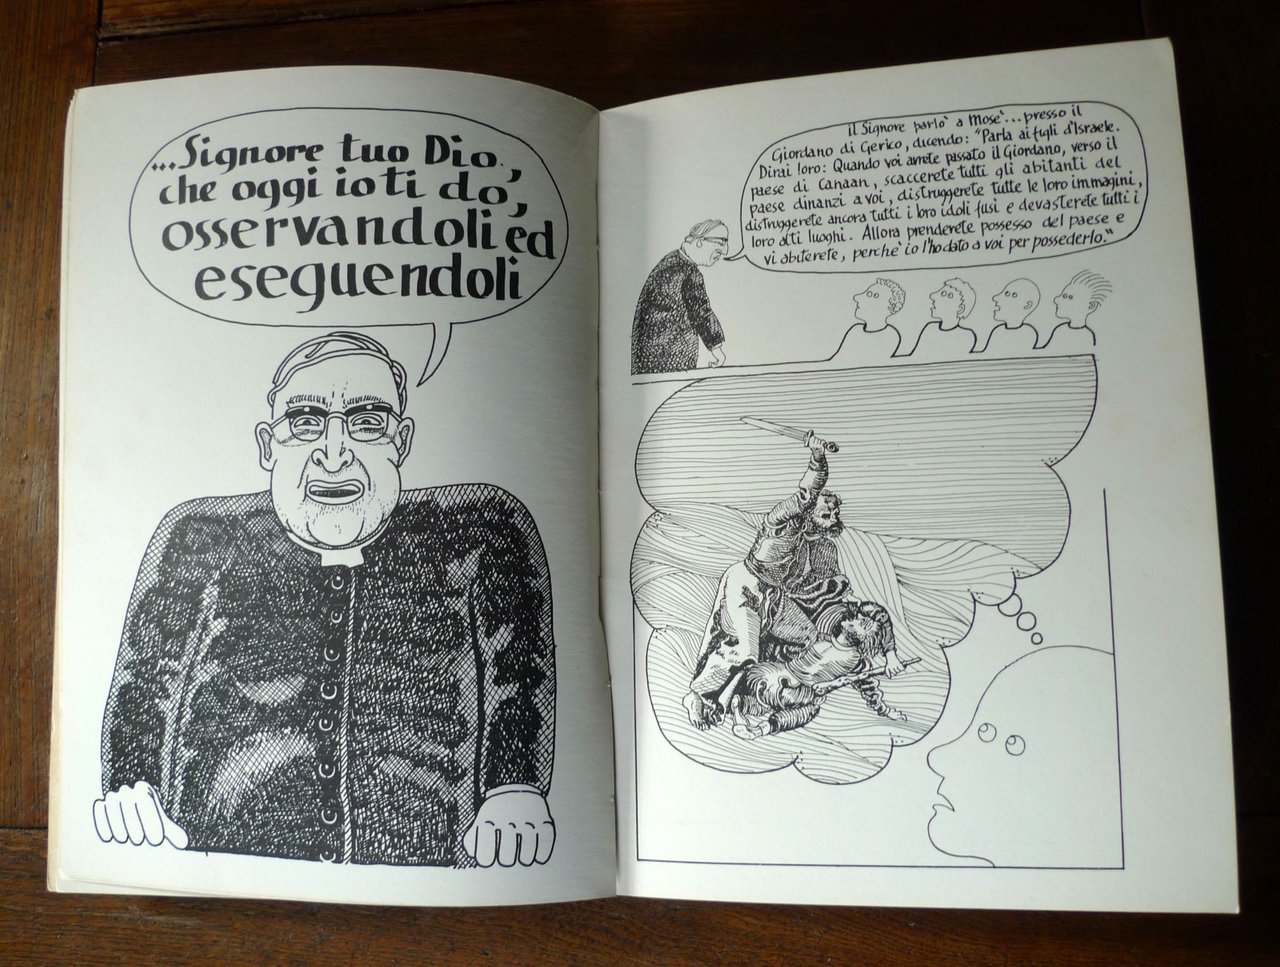 ...Signore tuo Dio,
che oggi io ti do,
osservandoli ed
eseguendoli
il Signore parlò a Mosè... presso il
Giordano di Gerico, dicendo: "Parla ai figli d'Israele.
Dirai loro: Quando voi avrete passato il Giordano, verso il
paese di Canaan, scaccerete tutti gli abitanti del
paese dinanzi a voi, distruggerete tutte le loro immagini,
distruggerete ancora tutti i loro idoli fusi e devasterete tutti i
loro alti luoghi. Allora prenderete possesso del paese e
vi abiterete, perchè io l'ho dato a voi per possederlo."